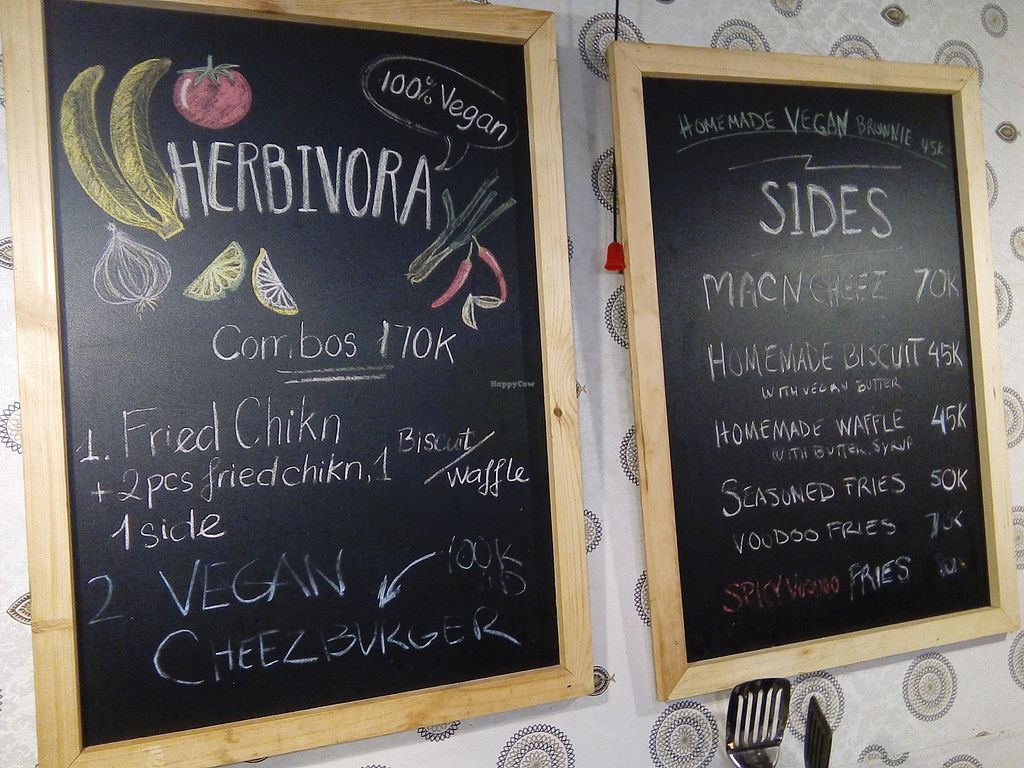 100% Vegan
HERBIVORA
Combos 170K
1. Fried Chikn
+ 2pcs fried chikn, 1 Biscuit/Waffle
1 side
2. VEGAN 100K
CHEEZBURGER
HappyCow
HOMEMADE VEGAN BROWNIE 45K
SIDES
MAC N CHEEZ 70K
HOMEMADE BISCUIT 45K
WITH VEGAN BUTTER
HOMEMADE WAFFLE 45K
WITH BUTTER, SYRUP
SEASONED FRIES 50K
VOODOO FRIES
SPICY VOODOO FRIES